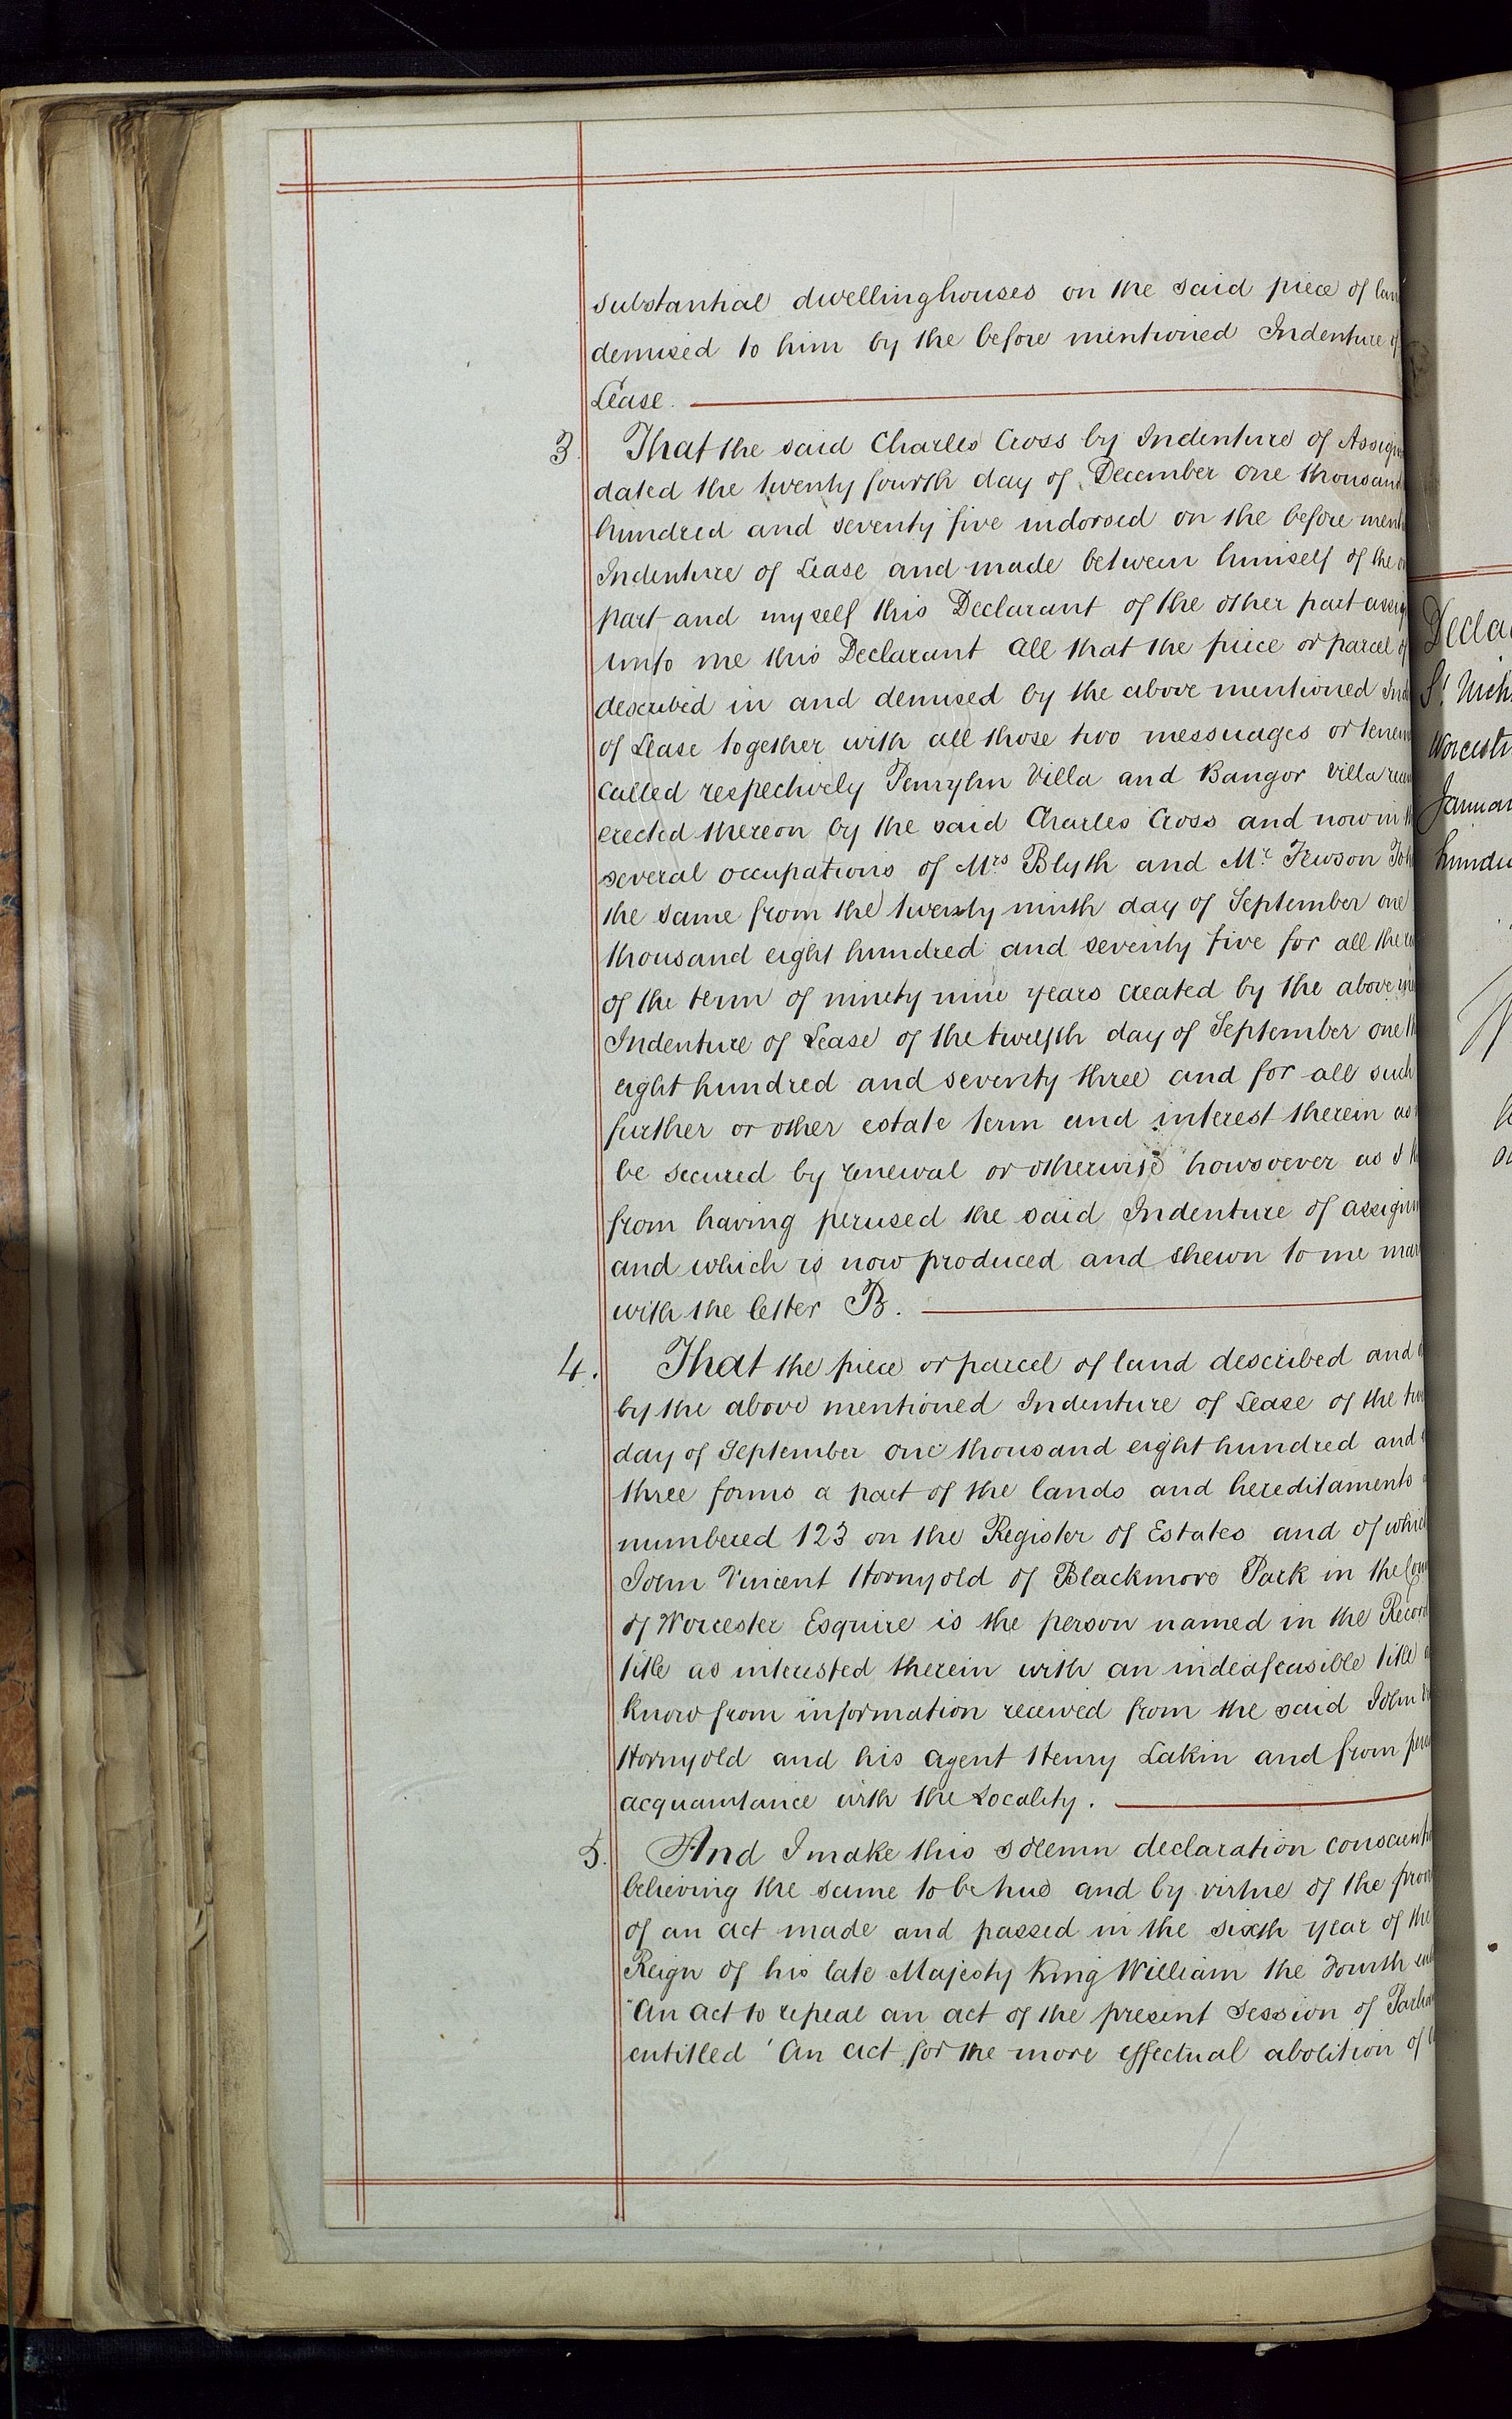 substantial dwellinghouses on the said piece of lan
demised to him by the before mentioned Indenture of
Lease.
3. That the said Charles Cross by Indenture of Assign
dated the twenty fourth day of December one thousand
hundred and seventy five indorsed on the before ment
Indenture of Lease and made between himself of the o
part and myself this Declarant of the other part assig
unto me this Declarant all that the piece or parcel of
described in and demised by the above mentioned Ind
of Lease together with all those two messuages or tenem
called respectively Penrylm Villa and Bangor Villa
erected thereon by the said Charles Cross and now in th
several occupations of Mrs Blyth and Mr Fewson To h
the same from the twenty ninth day of September one
thousand eight hundred and seventy five for all the
of the term of ninety nine years created by the above
Indenture of Lease of the twelfth day of September one th
eight hundred and seventy three and for all such
further or other estate term and interest therein as
be secured by renewal or otherwise howsoever as I
from having perused the said Indenture of assignm
and which is now produced and shewn to me mar
with the letter B.
4. That the piece or parcel of land described and
by the above mentioned Indenture of Lease of the twe
day of September one thousand eight hundred and s
three forms a part of the lands and hereditaments
numbered 123 on the Register of Estates and of which
John Vincent Hornyold of Blackmore Park in the Coun
of Worcester Esquire is the person named in the Record
title as interested therein with an indeafeasible title
know from information received from the said John
Hornyold and his agent Henry Lakin and from pers
acquaintance with the Locality.
5. And I make this solemn declaration conscienti
believing the same to be true and by virtue of the provi
of an act made and passed in the sixth year of the
Reign of his late Majesty King William the Fourth
"An act to repeal an act of the present Session of Parlia
entitled 'An act for the more effectual abolition of
Decla
St. Nich
Worcest
Januar
hundr